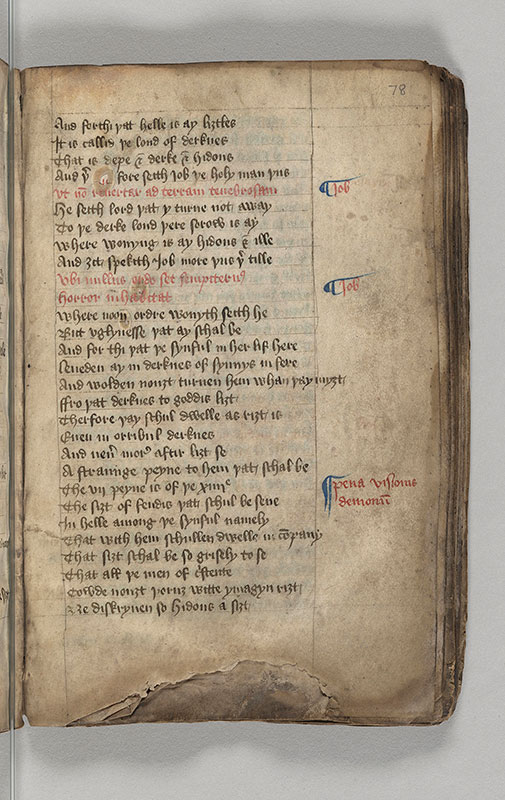 78
And forthi þat helle is ay liȝtles
It is callid þe lond of derknes
That is depe & derke & hidous
And þ̱ fore seith Job þe holy man þus
vt nō reuertar ad terram tenebrosam
Job
He seith lord þat y turne not away
To þe derke lond þere sorow is ay
where wonyng is ay hidous & ille
And ȝet spekith Job more þus þ̱ tille
Vbi nullus ordo set sempiternꝰ
Job
horror inhabitat
where noon ordre wonyth seith he
But vglynesse þat ay schal be
And for thi þat þe synful in her lif here
Leueden ay in derknes of synnys in fere
And wolden nouȝt turnen hem whan þay myȝt
ffro þat derknes to goddis liȝt
Therfore þay schul dwelle as riȝt is
Euen in orribul derknes
And neū mor aftir liȝt se
A straunge peyne to hem þat schal be
The vii peyne is of þe xiiii
pena visionis
The siȝt of fendis þat schul be sene
demonū
In helle among þe synful namely
That with hem schullen dwelle in cōpany
That siȝt schal be so grisely to se
That all þe men of cristente
Cowde nouȝt þoruȝ witte ymagyn riȝt
ne diskryuen so hidous a siȝt